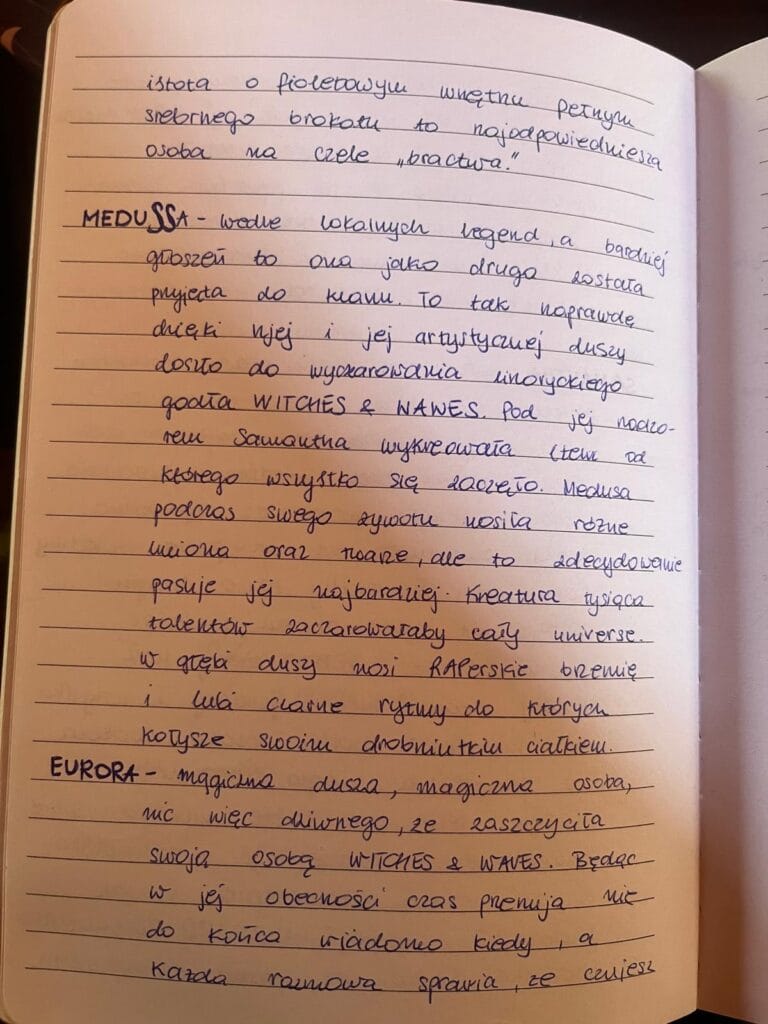 istota o fioletowym wnętrzu pełnym
srebrnego brokatu to najodpowiedniesza
osoba na czele „bractwa."
MEDUSSA - wedle lokalnych legend, a bardziej
głoszeń to ona jako druga została
przyjęta do klanu. To tak naprawdę
dzięki njej i jej artystycznej duszy
doszło do wyczarowania linoryckiego
godła WITCHES & WAWES. Pod jej nadzo-
rem Samantha wykreowała item od
którego wszystko się zaczęło. Medusa
podczas swego żywotu nosiła różne
imiona oraz twarze, ale to zdecydowanie
pasuje jej najbardziej. Kreatura tysiąca
talentów zaczarowałaby cały universe.
W głębi duszy nosi RAPerskie brzemię
i lubi czarne rytmy do których
kołysze swoim drobniutkim ciałkiem.
EURORA - magiczna dusza, magiczna osoba,
nic więc dziwnego, że zaszczyciła
swoją osobą WITCHES & WAVES. Będąc
w jej obecności czas przemija nie
do końca wiadomo kiedy, a
każda rozmowa sprawia, że czujesz